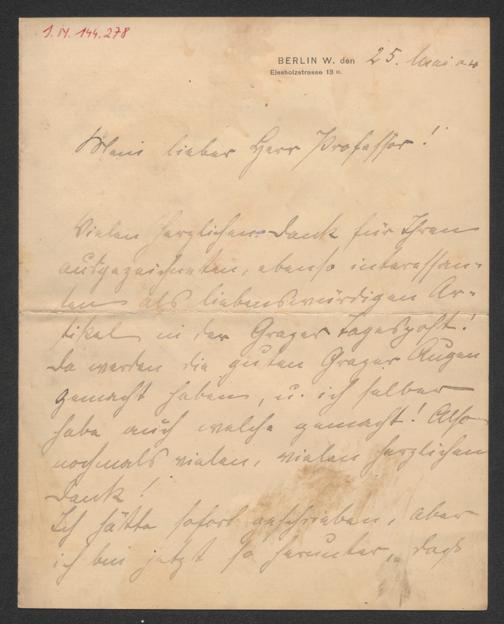 I.N. 144.278
BERLIN W. den 25. Mai 04
Eissholzstrasse 13 II.
Mein lieber Herr Professor!
Vielen herzlichen Dank für Ihren
ausgezeichneten, ebenso interessan-
ten als liebenswürdigen Ar-
tikel in der Grazer Tagespost!
Da werden die guten Grazer Augen
gemacht haben, u. ich selber
habe auch welche gemacht! Also
nochmals vielen, vielen herzlichen
Dank!
Ich hätte sofort geschrieben, aber
ich bin jetzt so herunter, dass